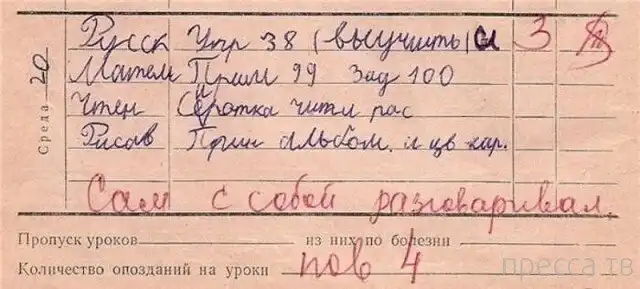 Среда 20
Русск Упр 38 (выучить) 3
Матем Прим 99 Зад 100
Чтен Сиротка читл рас
Рисов Прин альбом. и цв кар.
Сам с собой разговаривал.
Пропуск уроков из них по болезни
Количество опозданий на уроки пов 4
пресса.тв